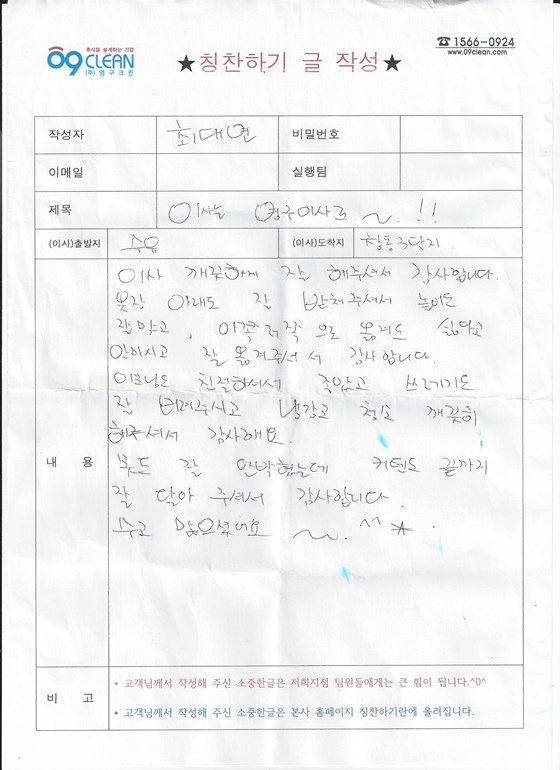 휴식을 설계하는 기업
09 CLEAN
(주)영구크린
★칭찬하기 글 작성★
☎ 1566-0924
www.09clean.com
작성자 최대연 비밀번호
이메일 실행팀
제목 이사는 영구이사로 ~. !!
(이사)출발지 수유 (이사)도착지 창동 3단지
내 용
이사 깨끗하게 잘 해주셔서 감사합니다.
옷장 아래도 잘 받쳐주셔서 높이도
잘맞고, 이쪽저쪽으로 옮겨도 싫다고
안하시고 잘 옮겨주셔서 감사합니다.
이모님도 친절하셔서 좋았고 쓰레기도
잘 버려주시고 냉장고 청소 깨끗히
해주셔서 감사해요.
못도 잘 안박혔는데 커텐도 끝까지
잘 달아 주셔서 감사합니다
수고 많으셨어요 ~. ^^ *.
비 고
* 고객님께서 작성해 주신 소중한글은 저희지점 팀원들에게는 큰 힘이 됩니다.^0^
* 고객님께서 작성해 주신 소중한글은 본사 홈페이지 칭찬하기란에 올려집니다.